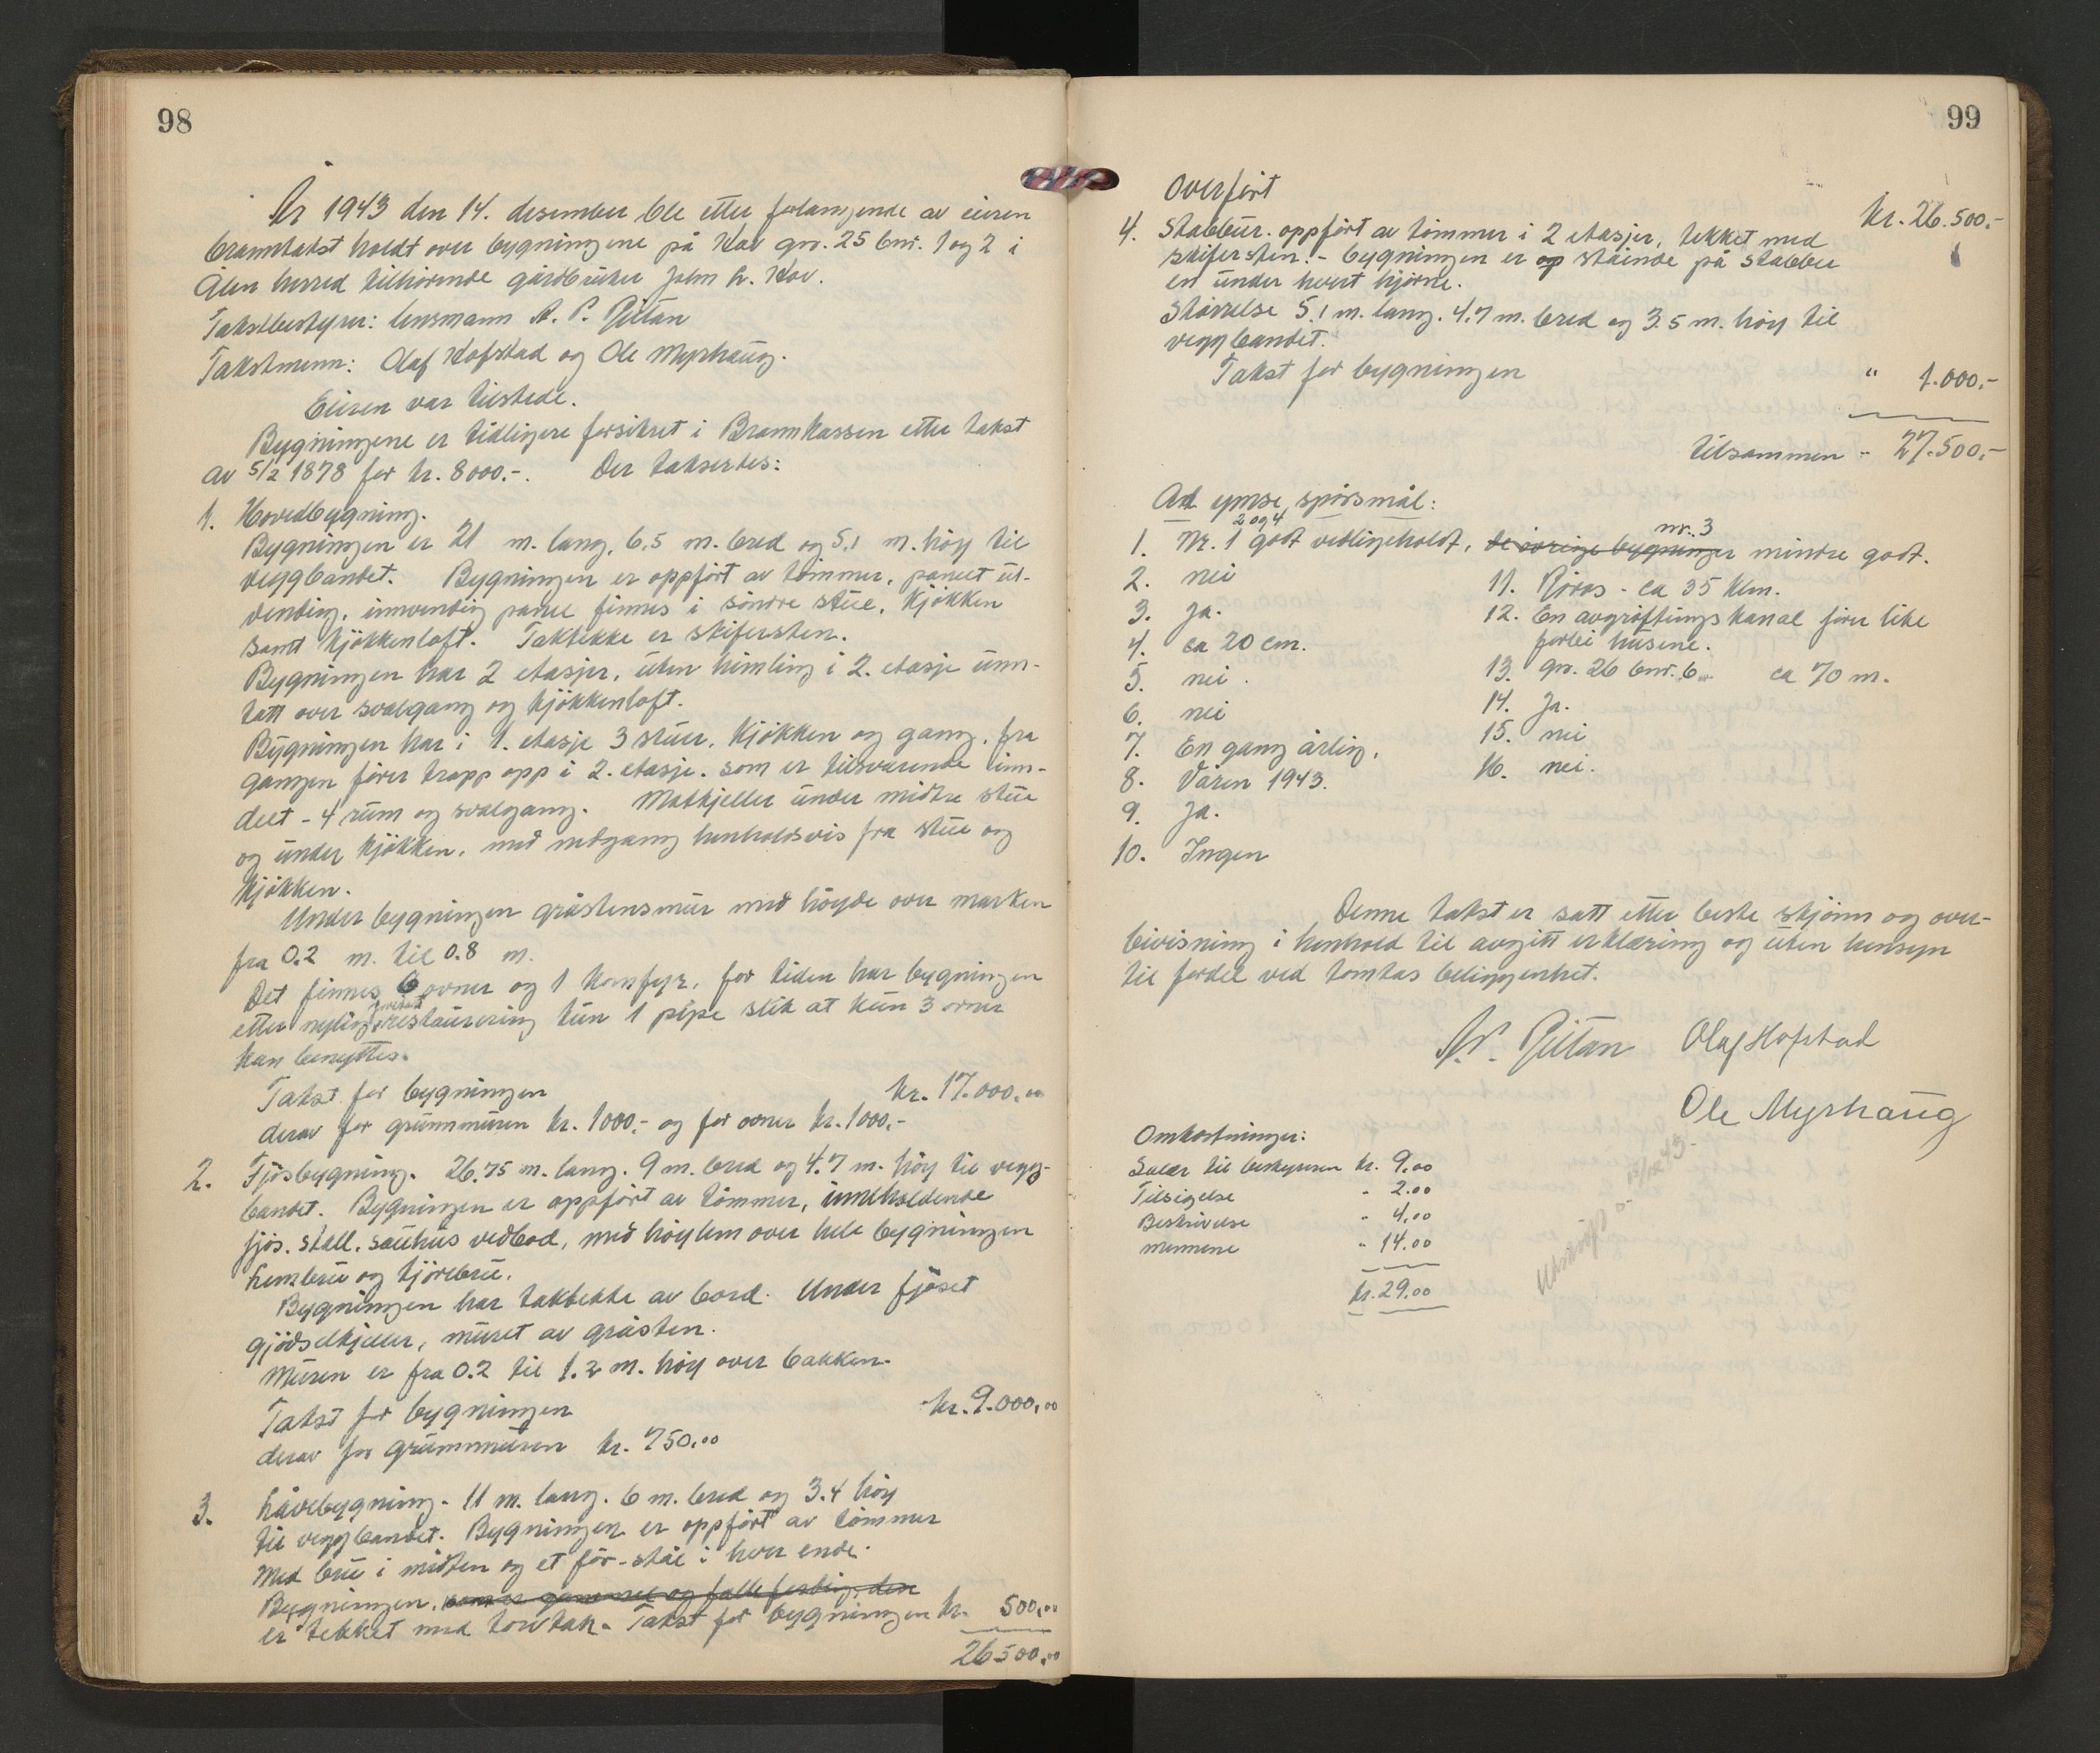 98
År 1943 den 14. desember ble etter forlangende av eieren
branntakst holdt over bygningene på Kov gnr. 25 bnr. 1 og 2 i
Ålen herred tilhørende gårdbruker John h. Kov.
Takstbestyrer: lensmann A. P. Gjetan
Takstmenn: Olaf Hofstad og Ole Myrhaug.
Eieren var tilstede.
Bygningene er tidligere forsikret i Brannkassen etter takst
av 5/2 1878 for kr. 8000.-. Der takseredes:
1. Hovedbygning.
Bygningen er 21 m. lang, 6,5 m. bred og 5,1 m. høy til
veggbandet. Bygningen er oppført av tømmer, panelt ut-
vendig, innvendig panel finnes i søndre stue, kjøkken
samt kjøkkenloft. Taktekke er skifersten.
Bygningen har 2 etasjer, uten himling i 2. etasje unn-
tatt over svalgang og kjøkkenloft.
Bygningen har i 1. etasje 3 stuer, kjøkken og gang, fra
gangen fører trapp opp i 2. etasje, som er tilsvarende inn-
delt - 4 rum og svalgang. Matkjeller under midtre stue
og under kjøkken, med nedgang henholdsvis fra stue og
kjøkken.
Under bygningen gråstensmur med høyde over marken
fra 0.2 m. til 0.8 m.
Det finnes 6 ovner og 1 komfyr, for tiden har bygningen
etter nylig restaurering kun 1 pipe slik at kun 3 ovner
kan benyttes.
Takst for bygningen kr. 17.000,00
derav for grunnmuren kr. 1000,- og for ovner kr. 1000,-
2. Fjøsbygning. 26,75 m. lang. 9 m. bred og 4.7 m. høy til vegg-
bandet. Bygningen er oppført av tømmer, inneholdende
fjøs. stall. sauhus vedbod, med høylem over hele bygningen
hembru og kjørebru.
Bygningen har taktekke av bord. Under fjøset
gjødselkjeller, muret av gråsten.
Muren er fra 0.2 til 1.2 m. høy over bakken.
Takst for bygningen kr. 9.000,00
derav for grunnmuren kr. 750,00
3. Låvebygning. 11 m. lang. 6 m. bred og 3.4 høy
til veggbandet. Bygningen er oppført av tømmer
med bru i midten og et for-stål i hver ende.
Bygningen, som er gammel og falleferdig, den
er tekket med torvtak. Takst for bygningen kr. 500,00
26500,00
99
Overført kr. 26.500,-
4. Stabbur. oppført av tømmer i 2 etasjer, tekket med
skifersten. - bygningen er op stående på stabber
en under hvert hjørne.
Størrelse 5.1 m. lang. 4.7 m. bred og 3.5 m. høy til
veggbandet.
Takst for bygningen " 1.000,-
tilsammen - 27.500,-
Ad ymse spørsmål:
1. Nr. 1 2 og 4 godt vedlikeholdt, de øvrige bygninger nr. 3 mindre godt.
2. nei
3. Ja.
4. ca 20 cm.
5. nei.
6. nei
7. En gang årlig.
8. Våren 1943.
9. Ja.
10. Ingen
11. Røros - ca 35 klm.
12. En avgrøftings kanal fører like
forbi husene.
13. gnr. 26 bnr. 6 ca 70 m.
14. Ja.
15. nei
16. nei.
Denne takst er satt etter beste skjønn og over-
bevisning i henhold til avgitt erklæring og uten hensyn
til fordel ved tomtas beliggenhet.
A. P. Gjetan Olaf Hofstad
Ole Myrhaug
Omkostninger:
Salær til bestyreren kr. 9,00
Tilsigelse " 2.00
Beskrivelse " 4,00
mennene " 14.00
kr. 29.00
Utskrift